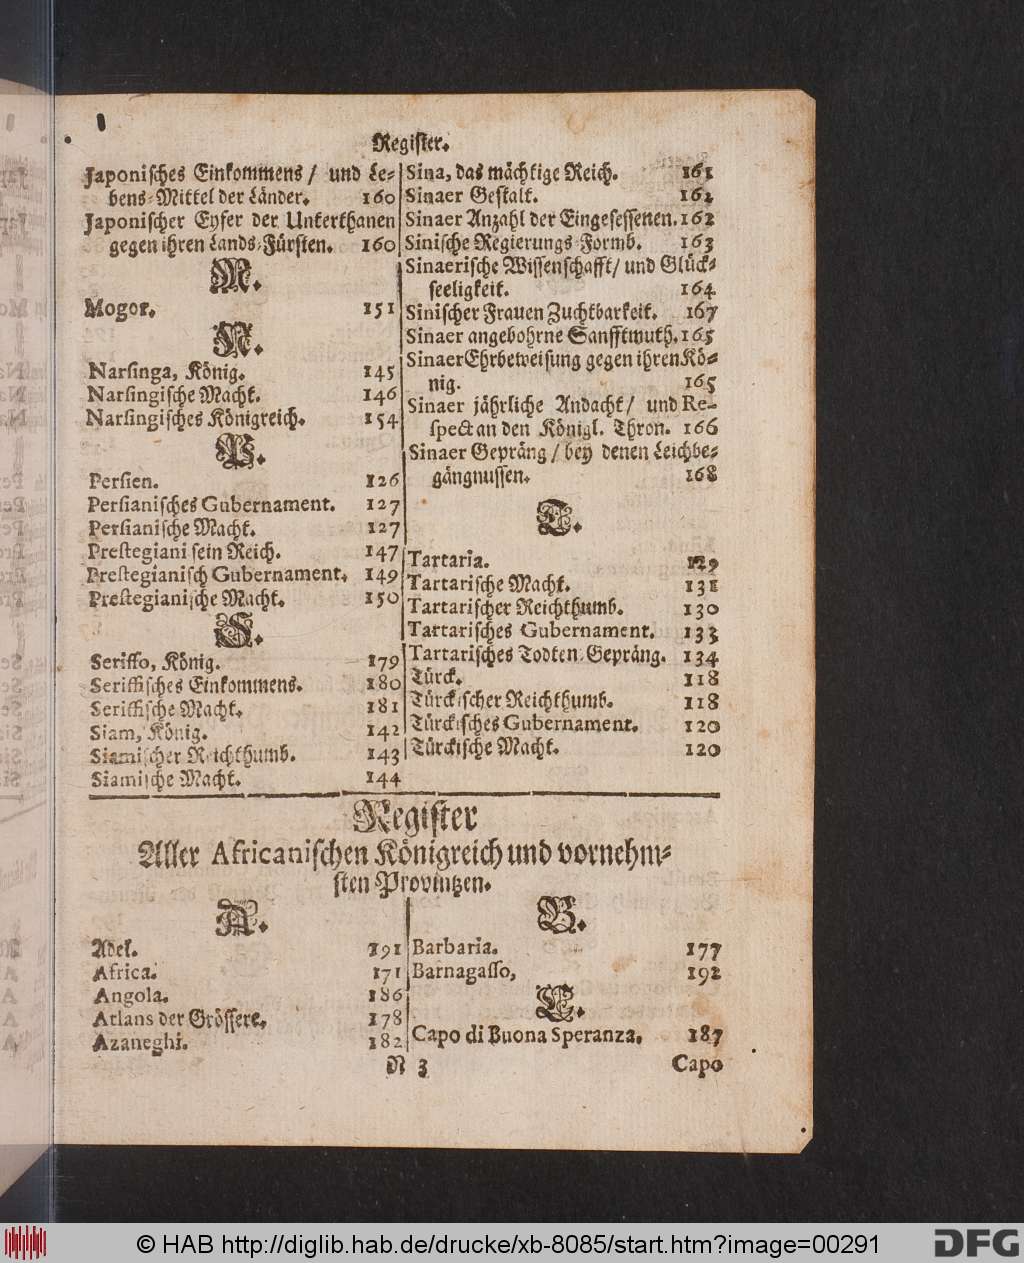 Register.
Japonisches Einkommens / und Le-
bens-Mittel der Länder. 160
Japonischer Eyfer der Unterthanen
gegen ihren Lands-Fürsten. 160
M.
Mogor. 151
N.
Narsinga, König. 145
Narsingische Macht. 146
Narsingisches Königreich. 154
P.
Persien. 126
Persianisches Gubernament. 127
Persianische Macht. 127
Prestegiani sein Reich. 147
Prestegianisch Gubernament. 149
Prestegianische Macht. 150
S.
Seriffo, König. 179
Seriffisches Einkommens. 180
Seriffische Macht. 181
Siam, König. 142
Siamischer Reichthumb. 143
Siamische Macht. 144
Sina, das mächtige Reich. 161
Sinaer Gestalt. 162
Sinaer Anzahl der Eingesessenen. 162
Sinische Regierungs-Formb. 163
Sinaerische Wissenschafft / und Glück-
seeligkeit. 164
Sinischer Frauen Zuchtbarkeit. 167
Sinaer angebohrne Sanfftmuth. 165
Sinaer Ehrbeweisung gegen ihren Kö-
nig. 165
Sinaer jährliche Andacht / und Re-
spect an den Königl. Thron. 166
Sinaer Gepräng / bey denen Leichbe-
gängnussen. 168
T.
Tartaria. 129
Tartarische Macht. 131
Tartarischer Reichthumb. 130
Tartarisches Gubernament. 133
Tartarisches Todten-Gepräng. 134
Türck. 118
Türckischer Reichthumb. 118
Türckisches Gubernament. 120
Türckische Macht. 120
Register
Aller Africanischen Königreich und vornehm-
sten Provintzen.
A.
Adel. 191
Africa. 171
Angola. 186
Atlans der Grössere. 178
Azaneghi. 182
B.
Barbaria. 177
Barnagasso, 192
C.
Capo di Buona Speranza. 187
N 3 Capo
© HAB http://diglib.hab.de/drucke/xb-8085/start.htm?image=00291
DFG